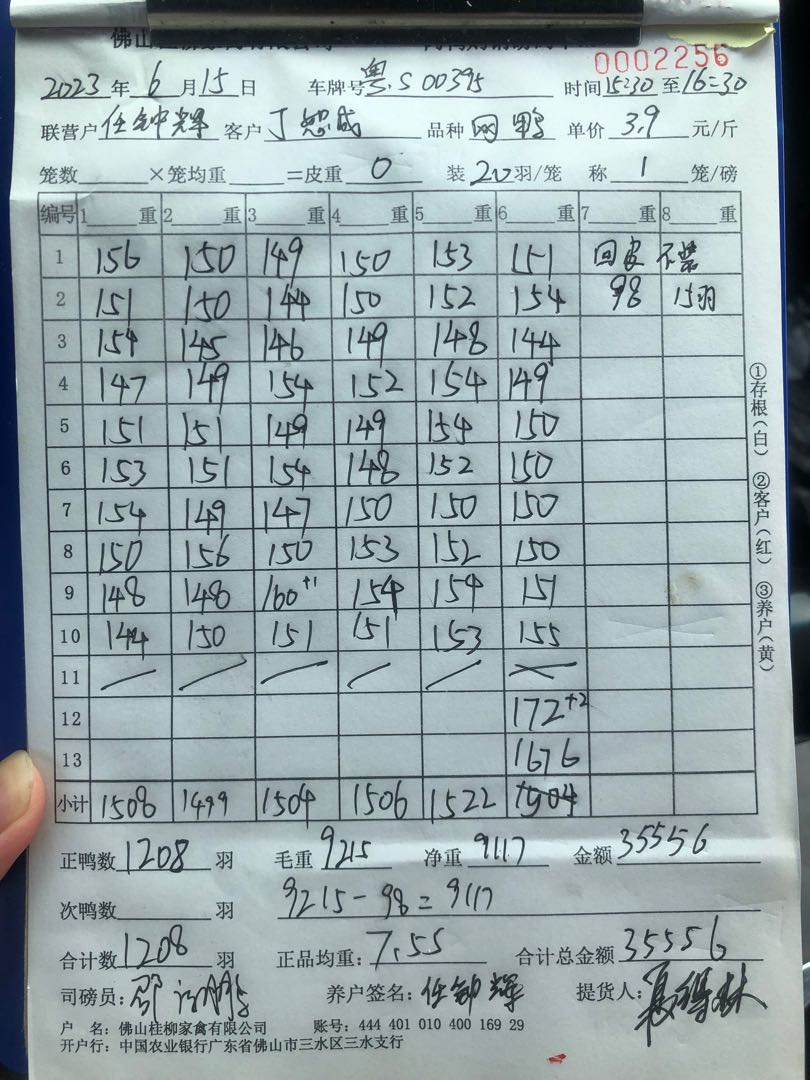 0002256
2023年6月15日 车牌号粤.S 00395 时间15:30至16:30
联营户任钟辉 客户丁 品种 网鸭 单价 3.9 元/斤
笼数 ×笼均重 =皮重 0 装 20羽/笼 称 1 笼/磅
编号 1 重 2 重 3 重 4 重 5 重 6 重 7 重 8 重
1 156 150 149 150 153 151 回皮
2 151 150 144 150 152 154 98 15羽
3 154 145 146 149 148 144
4 147 149 154 152 154 149
5 151 151 149 149 154 150
6 153 151 154 148 152 150
7 154 149 147 150 150 150
8 150 156 150 153 152 150
9 148 148 160+1 154 154 151
10 144 150 151 151 153 155
11
12 172+2
13 1676
小计 1508 1499 1504 1506 1522
正鸭数1208羽 毛重 9215 净重 9117 金额 35556
次鸭数 羽 9215-98=9117
合计数1208羽 正品均重:7.55 合计总金额35556
司磅员: 养户签名:任钟辉 提货人:
户 名:佛山桂柳家禽有限公司 账号:444 401 010 400 169 29
开户行:中国农业银行广东省佛山市三水区三水支行
①存根(白) ②客户(红) ③养户(黄)